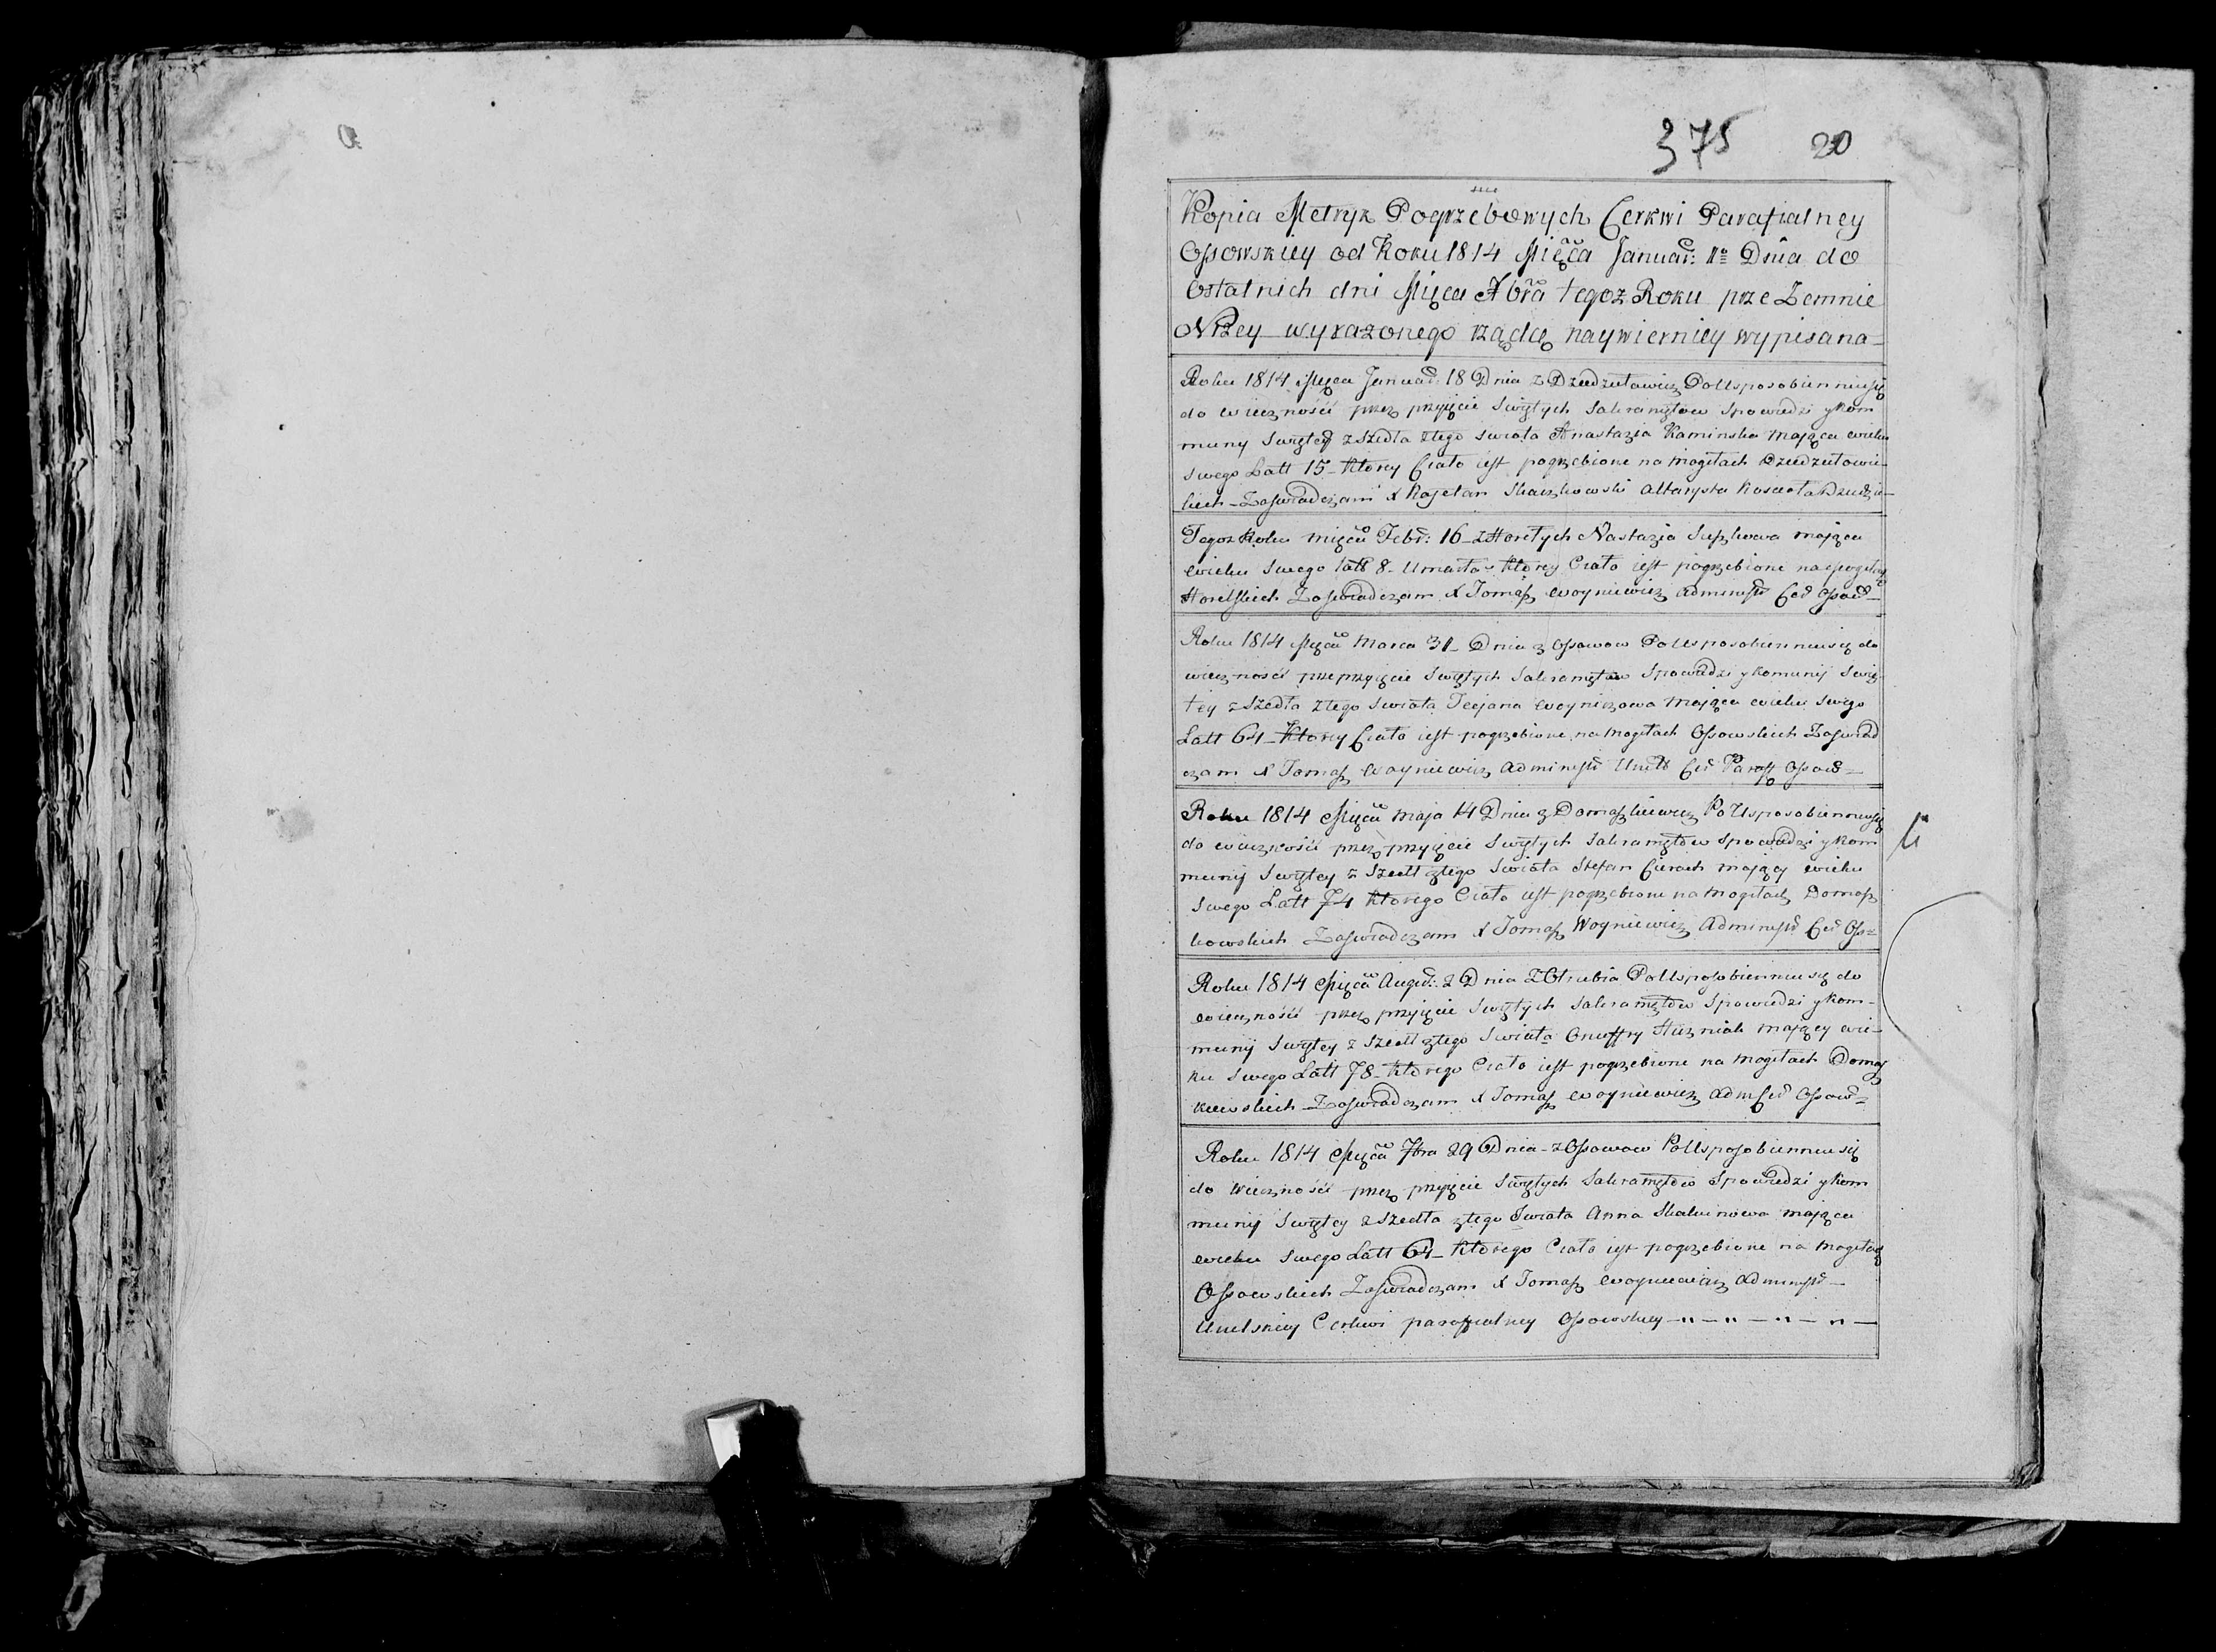 375 20
Kopia Metryk Pogrzebowych Cerkwi Parafialney
Ossowskiey od Roku 1814 Mięca Januar: 1º Dnia do
Ostatnich dni Mięca Xbra tegoz Roku prze Zemnie
Niżey wyrazonego rządcę naywierniey wypisana
Roku 1814 Mięca Januar: 18 Dnia z Dziedziutowicz Po Usposobienniu się
do wiecznośći przez przyięcie Swiętych Sakramętow Spowiedzi y kom
muny Swiętey zszedła ztego swiata Anastazia Kaminska mająca wieku
swego Latt 15 – Ktorey Ciało iest pogrzebione na Mogiłach Dziedziutowic
kich – Zaswiadczam X Kajetan Altarysta Koscioła
Tegoz Roku mięca Febr: 16 – z Horełych Nastazia mająca
wieku Swego latt 8 – Umarła – Ktorey Ciało iest pogrzebione na Mogiłach
Horelskich Zaswiadczam X Tomasz Woyniewicz Administr Cer Ossow –
Roku 1814 Mięca Marca 31 – Dnia z Ossowow Po Usposobienniu się do
wieczności prze przyięcie Swiętych Sakramętow Spowiedzi y Komunij Swię
tey zszedła ztego swiata Woyniczowa Mająca wieku swego
Latt 64 – Ktorey Ciało iest pogrzebione na Mogiłach Ossowskich Zaswiad
czam X Tomasz Woyniewicz Administr Unit Cer Paraf Ossow –
Roku 1814 Mięca Maja 14 Dnia z Domaszkiewicz Po Usposobienniu się
do wiecznośći przez przyięcie Swiętych Sakramętow Spowiedzi y kom
munij Swiętey z Szedł ztego Swiata Stefan Cierach mający wieku
Swego Latt 74 Ktorego Ciało iest pogrzebione na Mogiłach Domasz
kowskich Zaswiadczam X Tomasz Woyniewicz Administr Cer Oss
Roku 1814 Mięca August: 2 Dnia z Otrubia Po Usposobienniu się do
wiecznośći przez przyięcie Swiętych Sakramętow Spowiedzi y kom–
munij Swiętey z Szedł ztego Swiata Onuffry mający wie–
ku Swego Latt 78 – Ktorego Ciało iest pogrzebione na Mogiłach Domasz
kiewskich – Zaswiadczam X Tomasz Woyniewicz Adm Cer Ossow
Roku 1814 Mięca 7bra 29 Dnia – z Ossowow Po Usposobienniu się
do Wiecznośći przez przyięcie Swiętych Sakramętow Spowiedzi y kom
munij Swiętey zszedła ztego Swiata Anna Skakunowa mająca
wieku Swego Latt 64 – Ktorego Ciało iest pogrzebione na Mogiłach
Ossowskich Zaswiadczam X Tomasz Woyniewicz Administr –
Unitskiey Cerkwi parafialney Ossowskiey